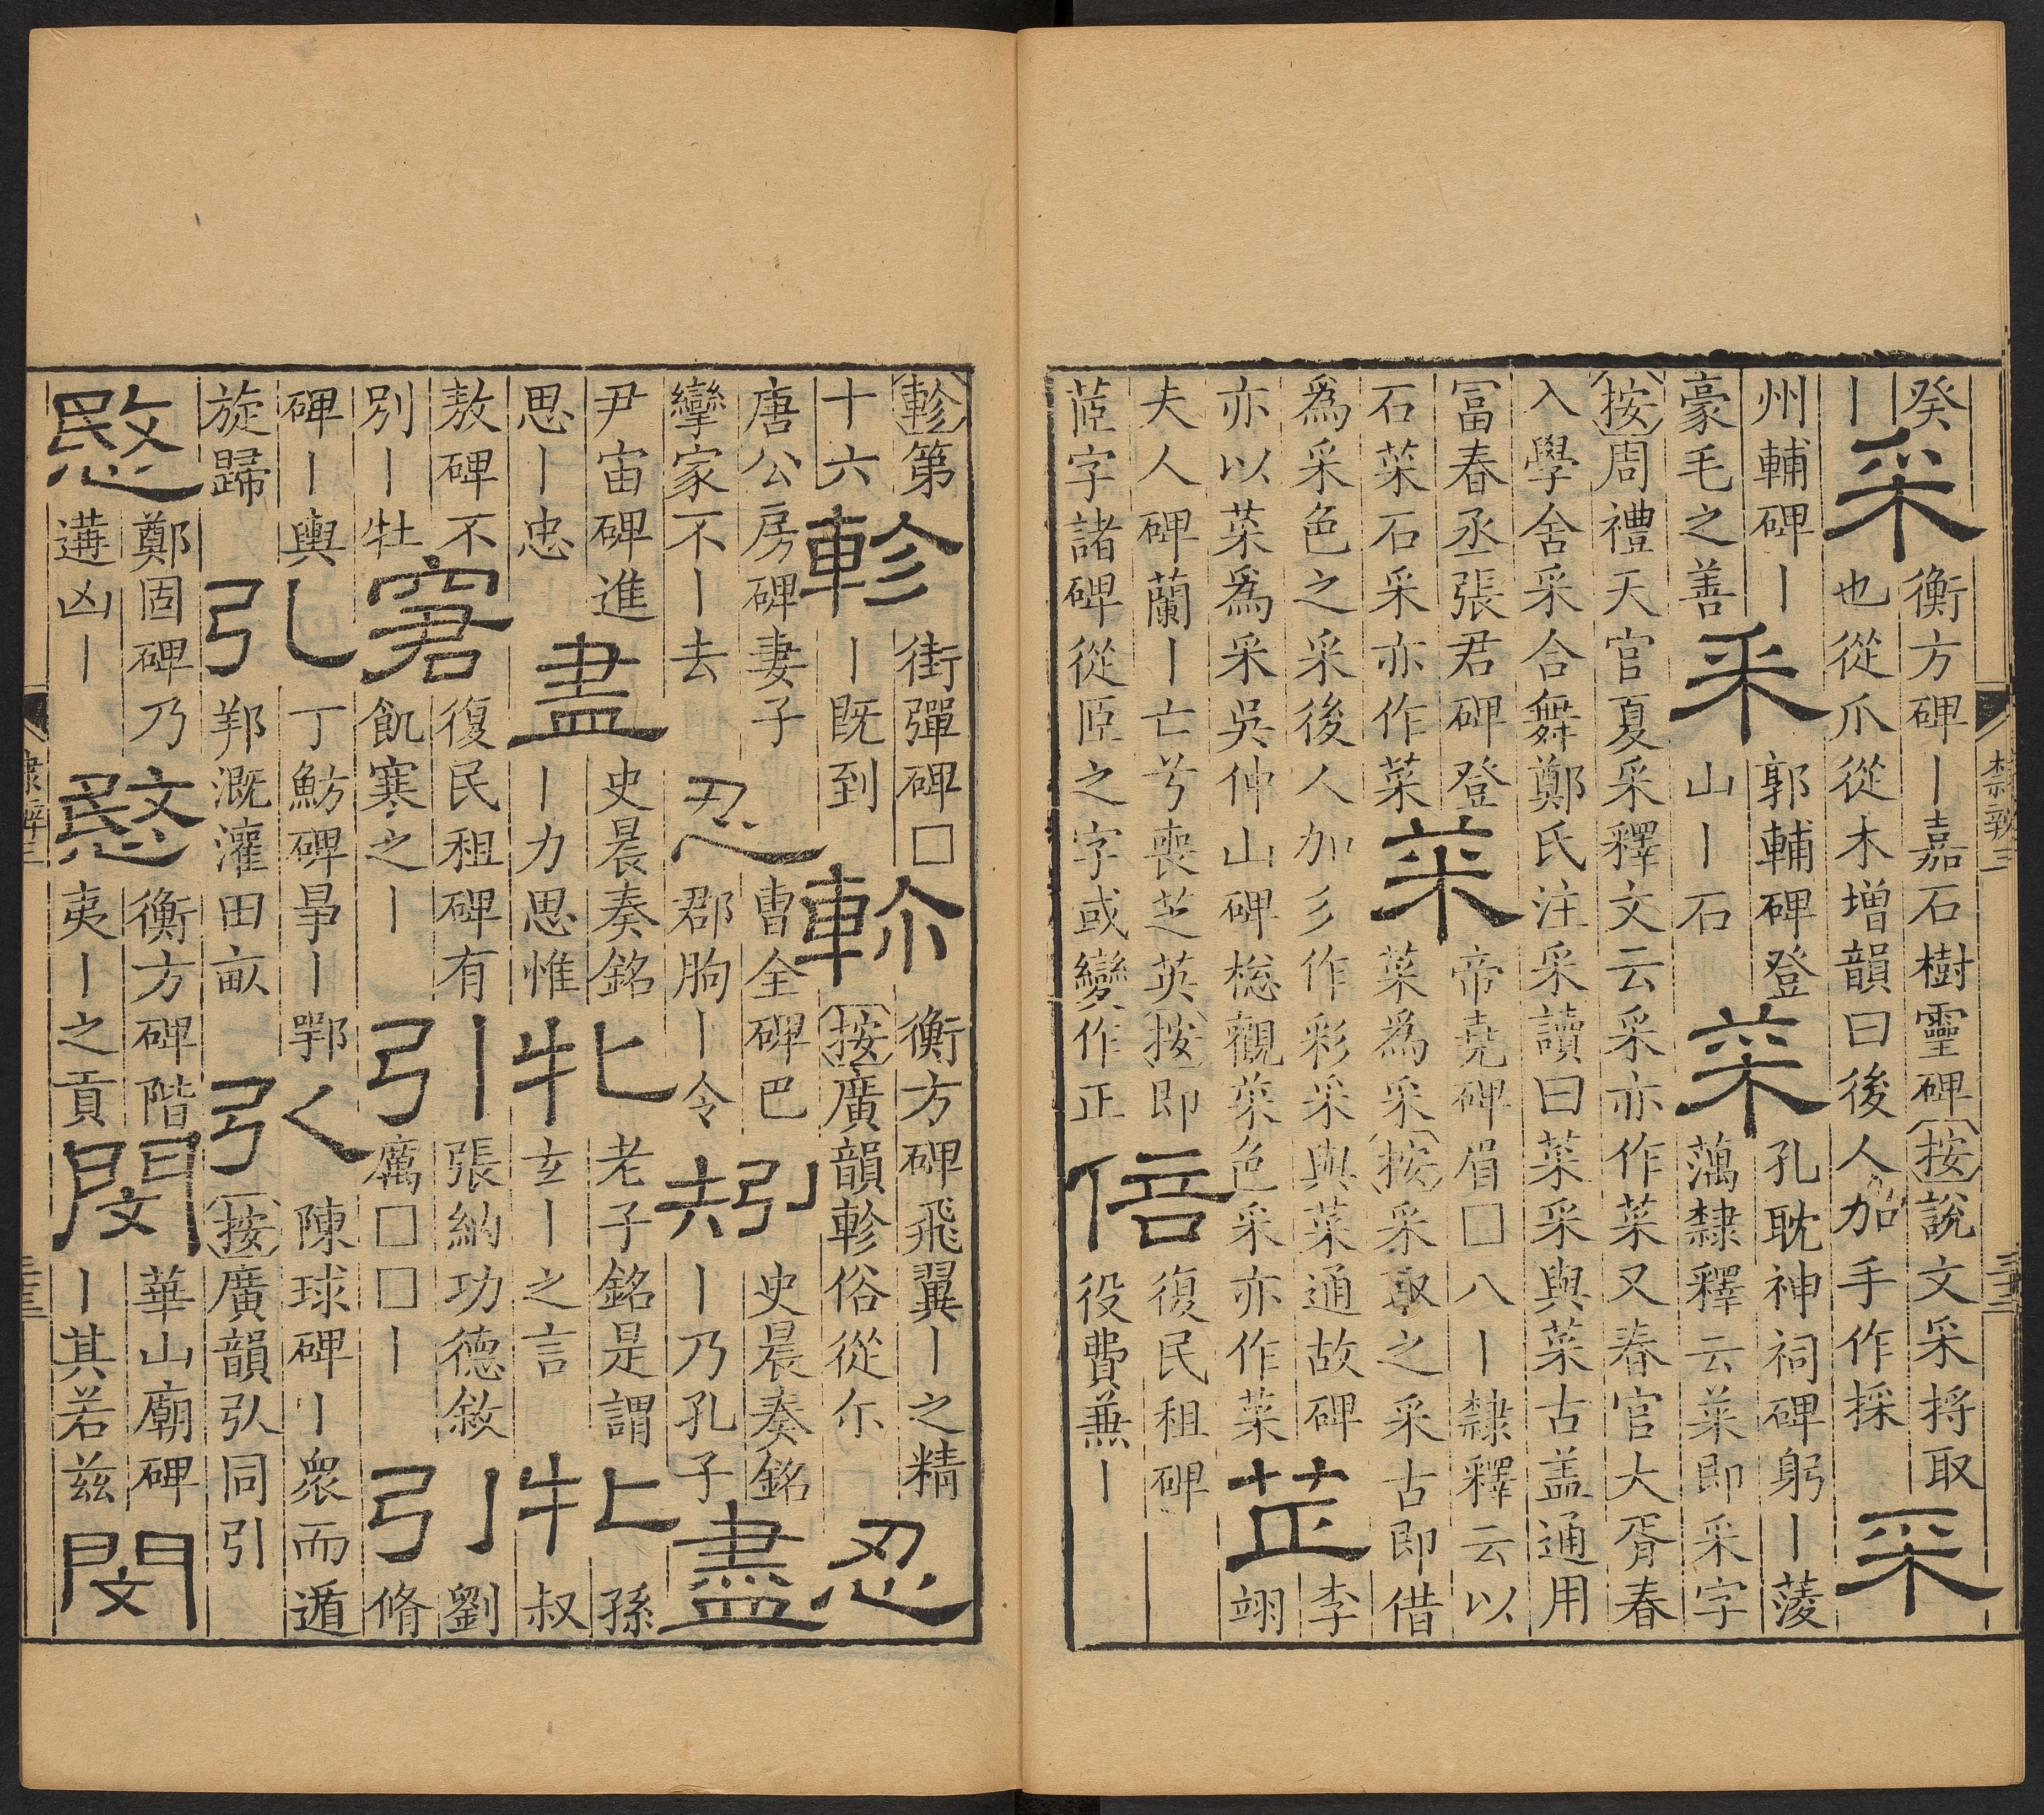 癸丨采衡方碑丨嘉石樹靈碑按說文采捋取也從爪從木增韻曰後人加手作採采
州輔碑丨豪毛之善采郭輔碑登山丨石菜孔耽神祠碑躬丨蔆藕隸釋云菜即采字
按周禮天官夏采釋文云采亦作菜又春官大胥春入學舍采合舞鄭氏注采讀曰菜采與菜古盖通用
冨春丞張君碑登石菜石采亦作菜菜帝堯碑眉□八丨隸釋云以菜為采按采取之采古即借
為采色之采後人加彡作彩采與菜通故碑亦以菜為采吳仲山碑觀菜色采亦作菜芷李翊
夫人碑蘭丨亡兮喪芝英按即茝字諸碑從𦣝之字或變作正倍復民租碑役費兼丨
隸辨三
三十三
軫第十六軫街彈碑□丨既到軫衡方碑飛翼丨之精按廣韻軫俗從尒忍
唐公房碑妻子攣家不丨去忍曹全碑巴郡朐丨令矧史晨奏銘丨乃孔子盡
尹宙碑進思丨忠盡史晨奏銘丨力思惟牝老子銘是謂玄丨之言牝孫叔
敖碑不別丨牡窘復民租碑有飢寒之丨引張納功德敘厲□□丨引劉脩
碑丨輿旋歸引丁魴碑丨鄂邦溉灌田畝引陳球碑丨眾而遁按廣韻弘同引
愍鄭固碑乃遘凶丨愍衡方碑階夷丨之貢閔華山廟碑丨其若茲閔
隸辨三
三十三